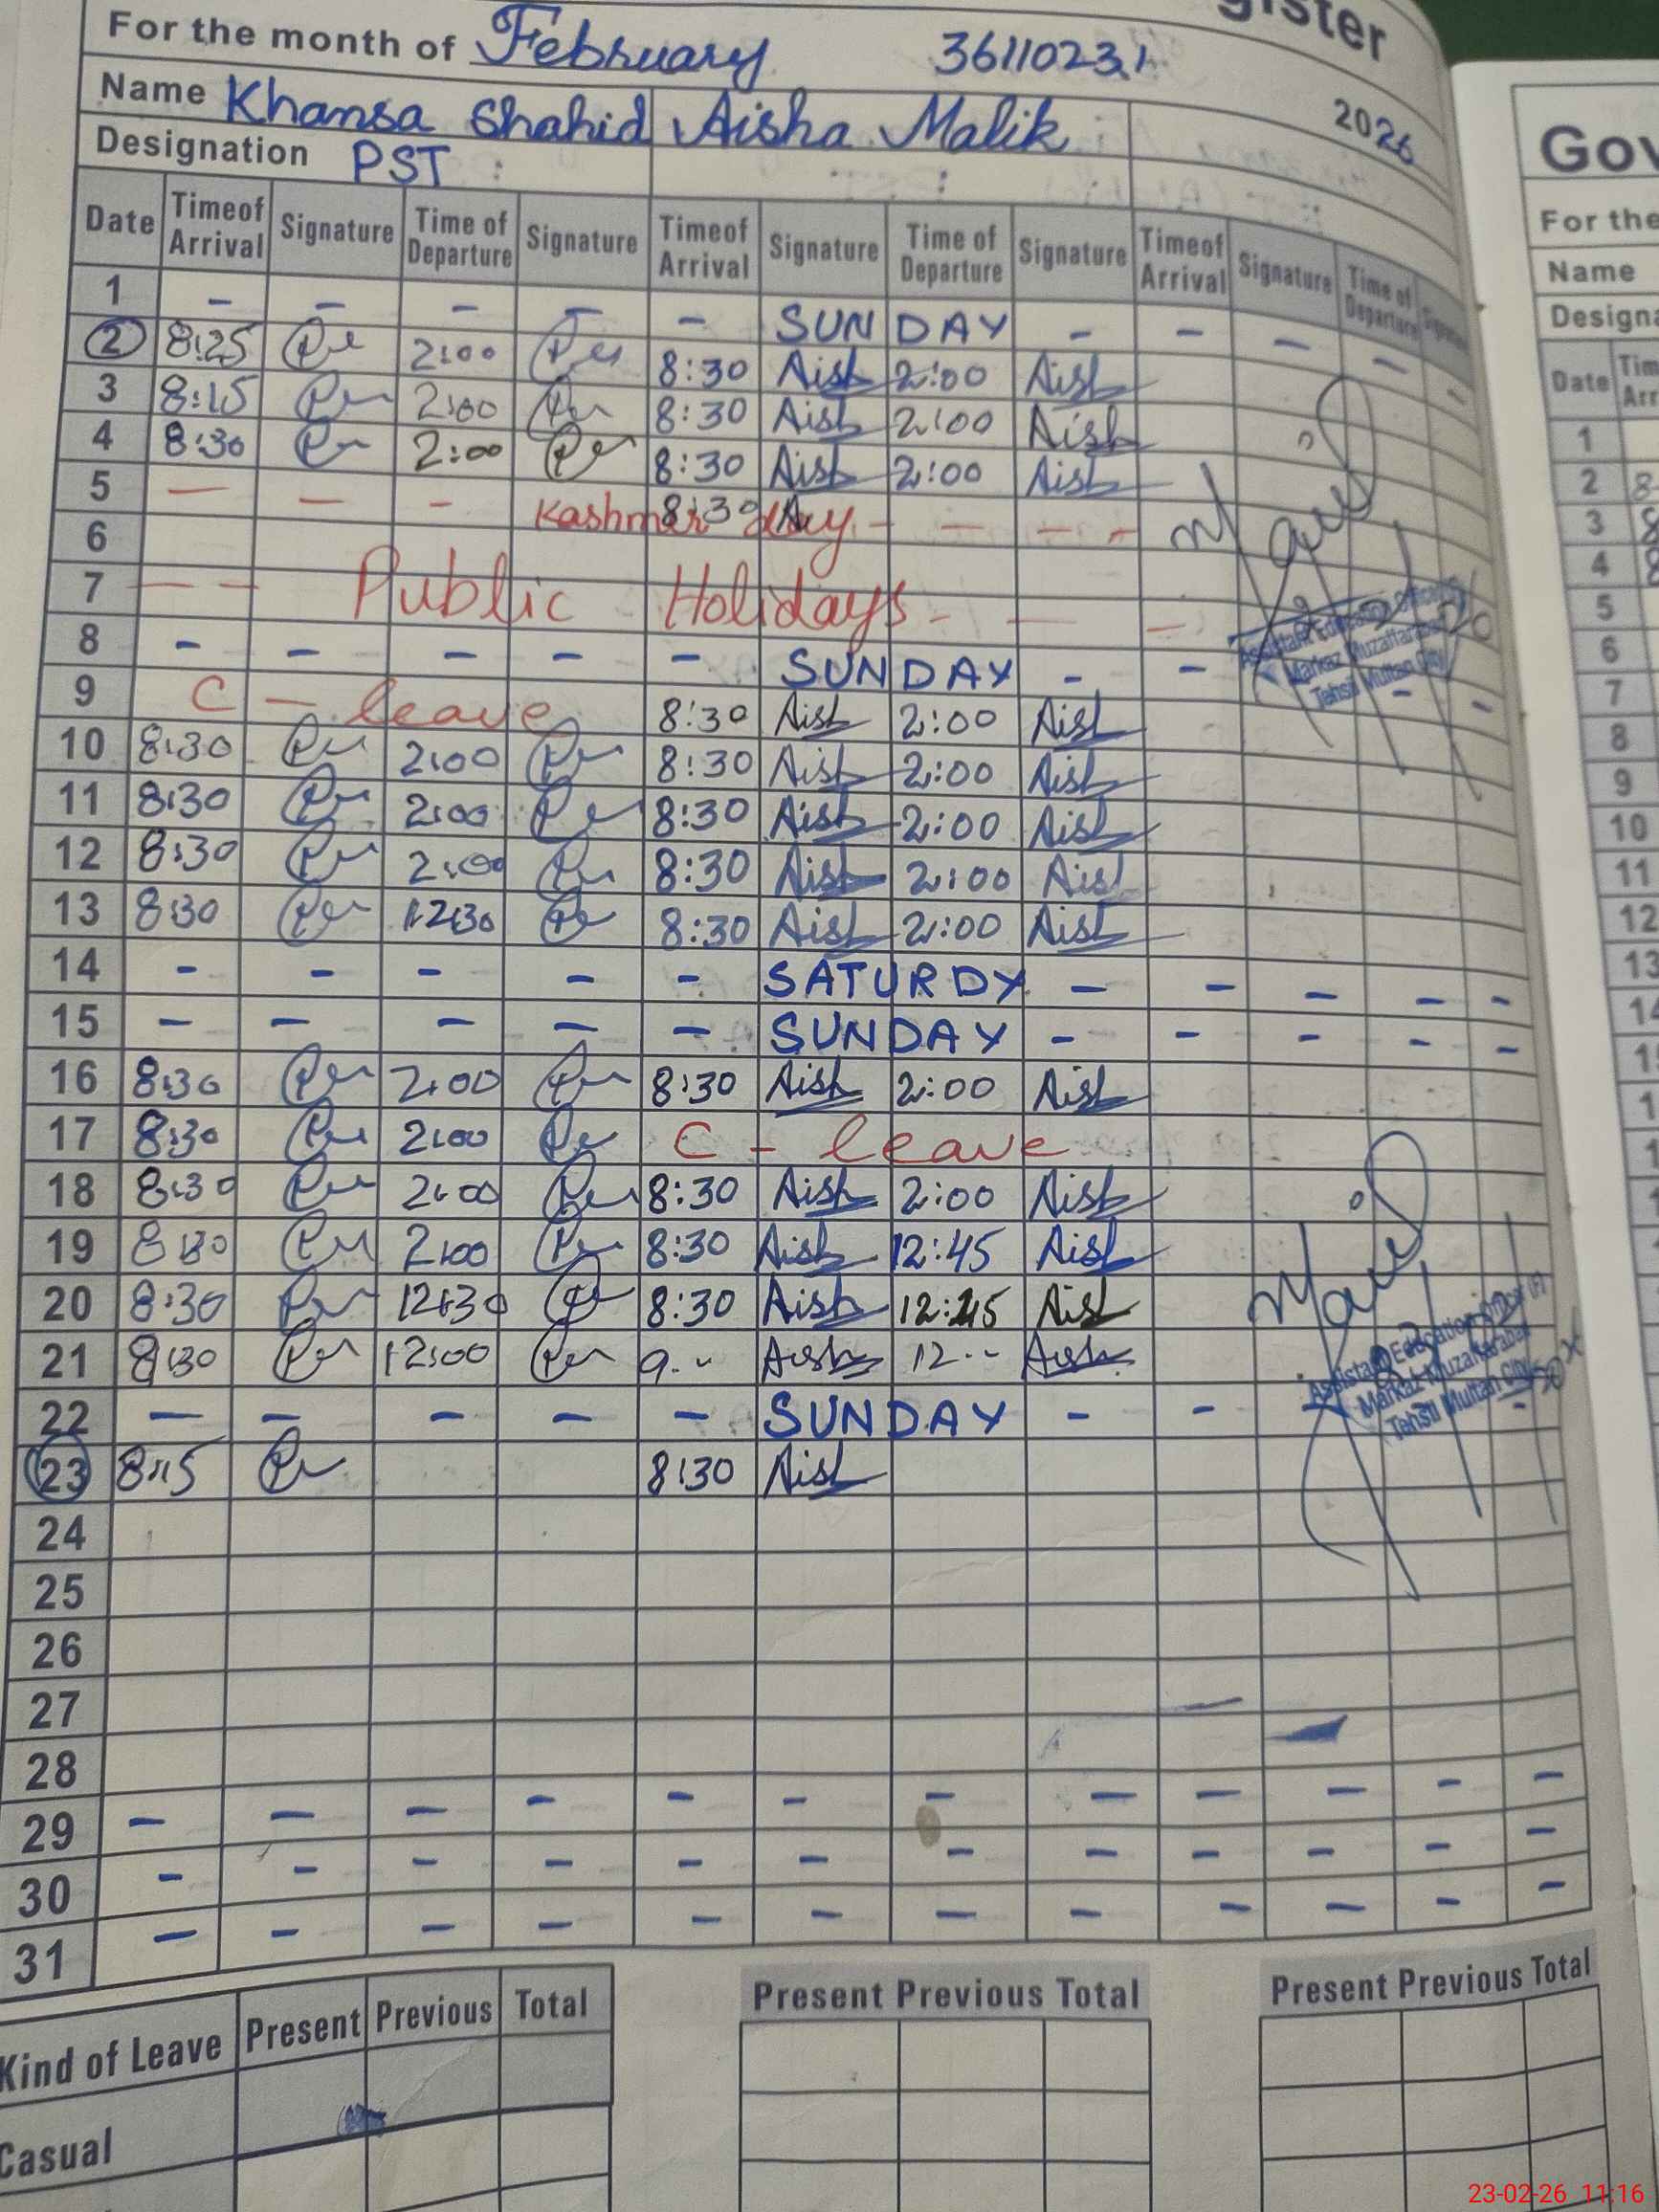 gister
For the month of February 36110231
2026
Name Khansa Shahid Aisha Malik
Designation PST : :
Date Timeof Arrival Signature Time of Departure Signature Timeof Arrival Signature Time of Departure Signature Timeof Arrival Signature Time of Departure
1 - - - - - SUNDAY - - - - -
2 8:25 2:00 8:30 Aish 2:00 Aish
3 8:15 2:00 8:30 Aish 2:00 Aish
4 8:30 2:00 8:30 Aish 2:00 Aish
5 - - - Kashmir day - - - -
8:30 A
6
7 - - Public Holidays - - -
8 - - - - - SUNDAY - - - -
9 C - leave 8:30 Aish 2:00 Aish
10 8:30 2:00 8:30 Aish 2:00 Aish
11 8:30 2:00 8:30 Aish 2:00 Aish
12 8:30 2:00 8:30 Aish 2:00 Aish
13 8:30 12:30 8:30 Aish 2:00 Aish
14 - - - - - SATURDY - - - - -
15 - - - - - SUNDAY - - - - -
16 8:30 2:00 8:30 Aish 2:00 Aish
17 8:30 2:00 C - leave
18 8:30 2:00 8:30 Aish 2:00 Aish
19 8:30 2:00 8:30 Aish 12:45 Aish
20 8:30 12:30 8:30 Aish 12:45 Aish
21 8:30 12:00 9.. Aish 12.. Aish
22 - - - - - SUNDAY - - -
23 8:15 8:30 Aish
24
25
26
27
28
29 - - - - - - - - - - - -
30 - - - - - - - - - - - -
31 - - - - - - - - - - - -
Assistant Education Officer
Markaz Muzaffarabad
Tehsil Multan City
Assistant Education Officer (F)
Markaz Muzaffarabad
Tehsil Multan City
Kind of Leave Present Previous Total
Present Previous Total
Present Previous Total
Casual
Gov
For the
Name
Designa
Date Tim
Arr
1
2 8
3 8
4 8
5
6
7
8
9
10
11
12
13
14
23-02-26 11:16